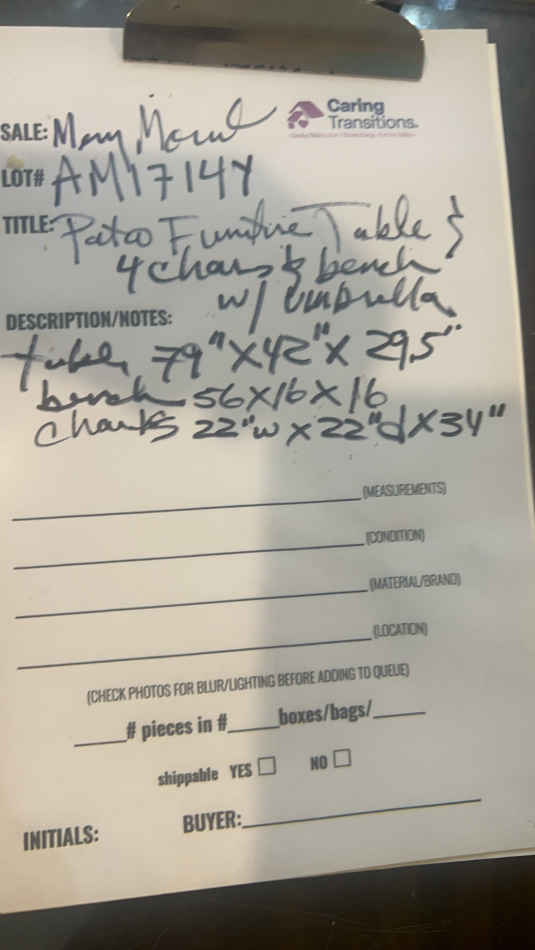 Caring
Transitions.
SALE: Mary
LOT# AM1714Y
TITLE: Patio Furniture Table &
4 Chairs & bench
w/ Umbrella
DESCRIPTION/NOTES:
table 79" X 42" X 29.5"
bench 56 X 16 X 16
chairs 22"w X 22"d X 34"
(MEASUREMENTS)
(CONDITION)
(MATERIAL/BRAND)
(LOCATION)
(CHECK PHOTOS FOR BLUR/LIGHTING BEFORE ADDING TO QUEUE)
# pieces in # boxes/bags/
shippable YES NO
INITIALS: BUYER: